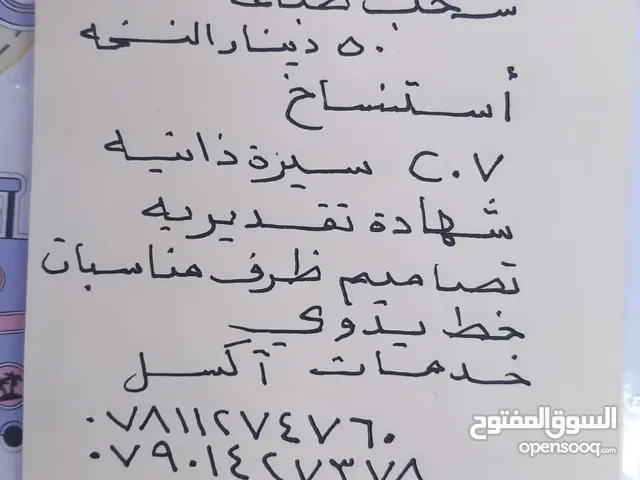 سحب طباعة
٥٠ دينار النسخه
أستنساخ
C.V سيرة ذاتيه
شهادة تقديريه
تصاميم ظرف مناسبات
خط يدوي
خدمات آكسل
٠٧٨١١٢٧٤٧٦٠
٠٧٩٠١٤٢٧٣٧٨
السوق المفتوح
opensooq.com